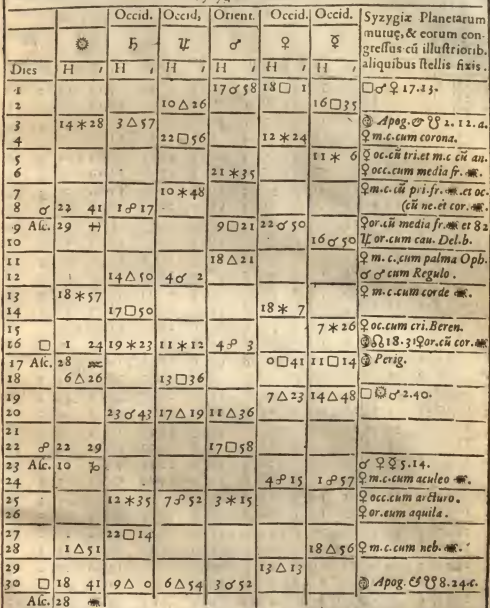 Occid. Occid, Orient. Occid. Occid. Syzygiæ Planetarum
mutuę, & eorum con-
☼ ♄ ♃ ♂ ♀ ☿ gressus cū illustriorib.
Dies H ′ H ′ H ′ H ′ H ′ H ′ aliquibus stellis fixis.
1 17☌58 18□ 1 □♂♀17.13.
2 10△26 16□35
3 14⚹28 3△57 Apog. & ☋ 2. 12. a.
4 22□56 12⚹24 ♀m.c.cum corona.
5 11⚹ 6 ☿ oc.cū tri.et m.c cū an.
6 21⚹35 ♀occ.cum media fr. ♏.
7 10⚹48 ♀m.c. cū pri.fr. ♏.et oc.
8 ☌ 22 41 1☍17 (cū ne.et cor. ♏.
9 Asc. 29 ♓ 9□21 22☌50 ♀or.cū media fr. ♏ et 82
10 16☌50 ♃ or.cum cau. Del.b.
11 18△21 ♀ m. c. cum palma Oph.
12 14△50 4☌ 2 ☌ ♂ cum Regulo.
13 18⚹57 ♀ m.c.cum corde ♏.
14 17□50 18⚹ 7
15 7⚹26 ♀oc.cum cri.Beren.
16 □ 1 24 19⚹23 11⚹12 4☍ 3 ☊18.31♀or.cū cor. ♏
17 Asc. 28 ♒ 0□41 11□14 Perig.
18 6△26 13□36
19 7△23 14△48 □☼♂2.40.
20 23☌43 17△19 11△36
21
22 ☍ 22 29 17□58
23 Asc. 10 ♑ ☌ ♀☿5.14.
24 4☍15 1☍57 ♀m.c.cum aculeo ♏.
25 12⚹35 7☍52 3⚹15 ♀occ.cum arcturo.
26 ♀or.cum aquila.
27 22□14
28 1△51 18△56 ♀m.c.cum neb. ♏.
29 13△13
30 □ 18 41 9△ 0 6△54 3☌52 Apog. & ☋ 8.24.c.
Asc. 28 ♏